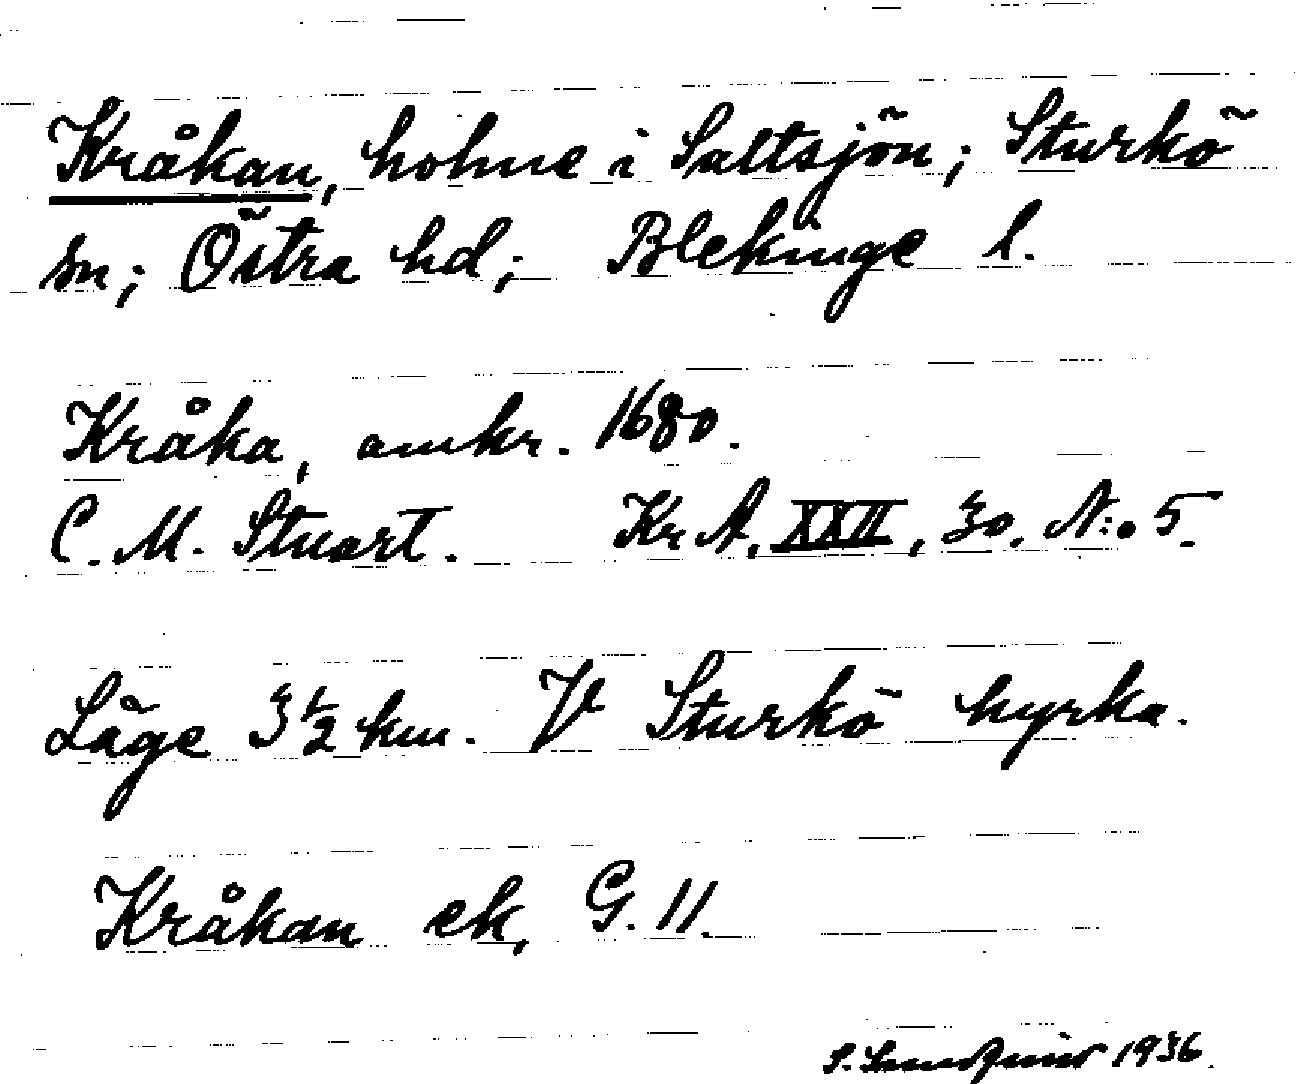 Kråkan, holme i Saltsjön; Sturkö
sn; Östra hd; Blekinge l.
Kråka, omkr. 1680.
C. M. Stuart. Kr A, XXII, 30. N:o 5.
Läge 3 1/2 km. V Sturkö kyrka.
Kråkan ek, G. 11.
S. 1936.